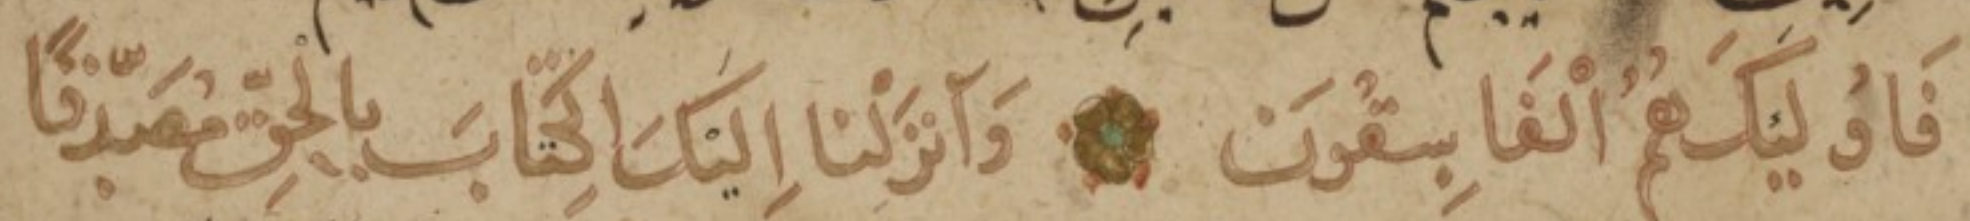 فَاُولٰئِكَ هُمُ الْفَاسِقُونَ وَاَنْزَلْنَا اِلَيْكَ الْكِتَابَ بِالْحَقِّ مُصَدِّقًا